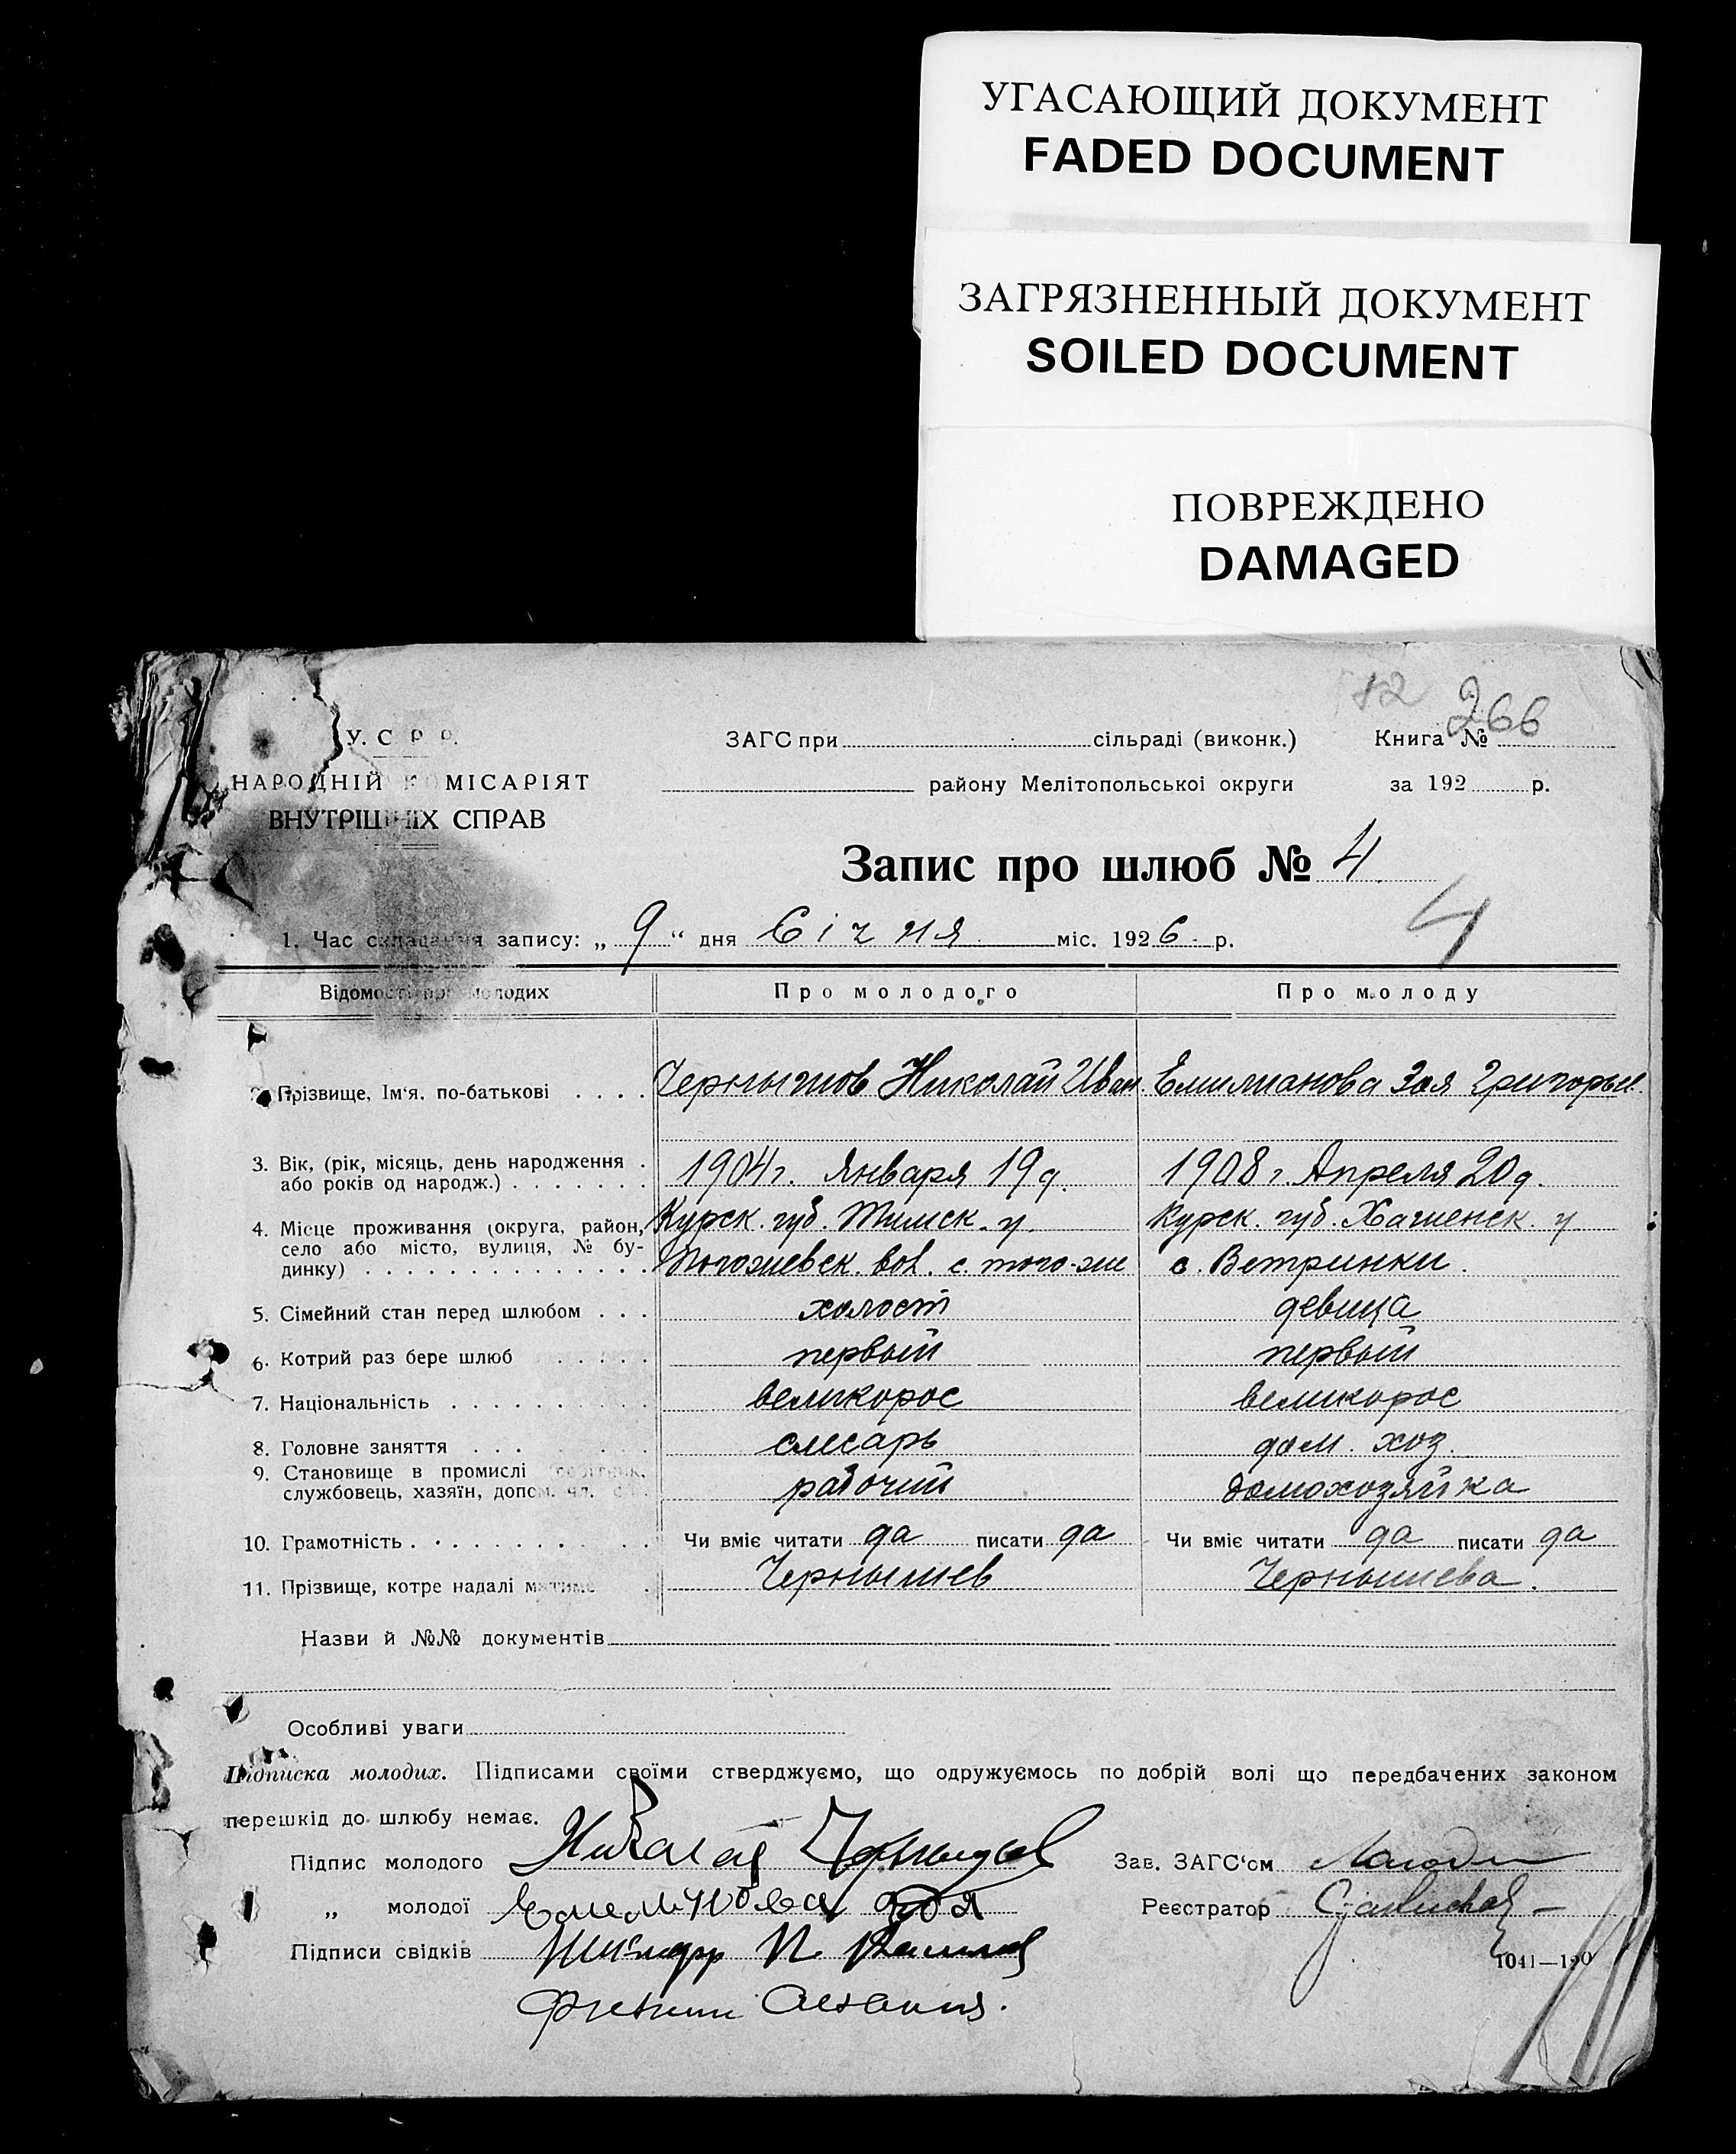 УГАСАЮЩИЙ ДОКУМЕНТ
FADED DOCUMENT
ЗАГРЯЗНЕННЫЙ ДОКУМЕНТ
SOILED DOCUMENT
ПОВРЕЖДЕНО
DAMAGED
12 266
У. С. Р. Р. ЗАГС при сільраді (виконк.) Книга №
НАРОДНІЙ КОМІСАРІЯТ району Мелітопольскоі округи за 192 р.
ВНУТРІШНІХ СПРАВ
Запис про шлюб № 4.
4
1. Час складання запису: „ 9 “ дня Січня міс. 1926 р.
Відомості про молодих Про молодого Про молоду
2. Прізвище, Ім‘я, по-батькові . . . . Чернышов Николай Иван. Емильянова Зоя Григорьев.
3. Вік, (рік, місяць, день народження . 1904 г. Января 19 д. 1908 г. Апреля 20 д.
або років од народж.) . . . . . . .
4. Місце проживання (округа, район, Курск. губ. Тимск. у. Курск. губ. у
село або місто, вулиця, № бу-
динку) . . . . . . . . . . . . . Погожевск. вол. с. того-же с. Ветринки.
5. Сімейний стан перед шлюбом . . . холост девица
6. Котрий раз бере шлюб . . . . . первый первый
7. Національність . . . . . . . . . . великорос великорос
8. Головне заняття . . . . . . слесарь дом. хоз.
9. Становище в промислі
службовець, хазяїн, допом. чл. рабочий домохозяйка
10. Грамотність . . . . . . . . . . . Чи вміє читати да писати да Чи вміє читати да писати да
11. Прізвище, котре надалі матиме . Чернышев Чернышева.
Назви й №№ документів
Особливі уваги
Підписка молодих. Підписами своїми стверджуємо, що одружуємось по добрій волі що передбачених законом
перешкід до шлюбу немає.
Підпис молодого Николай Чернышов Зав. ЗАГС‘ом
„ молодої Зоя Реєстратор
Підписи свідків
1041—190